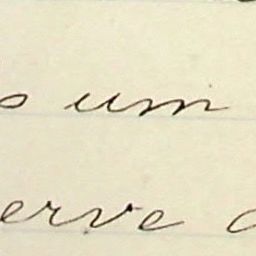 s um
erve